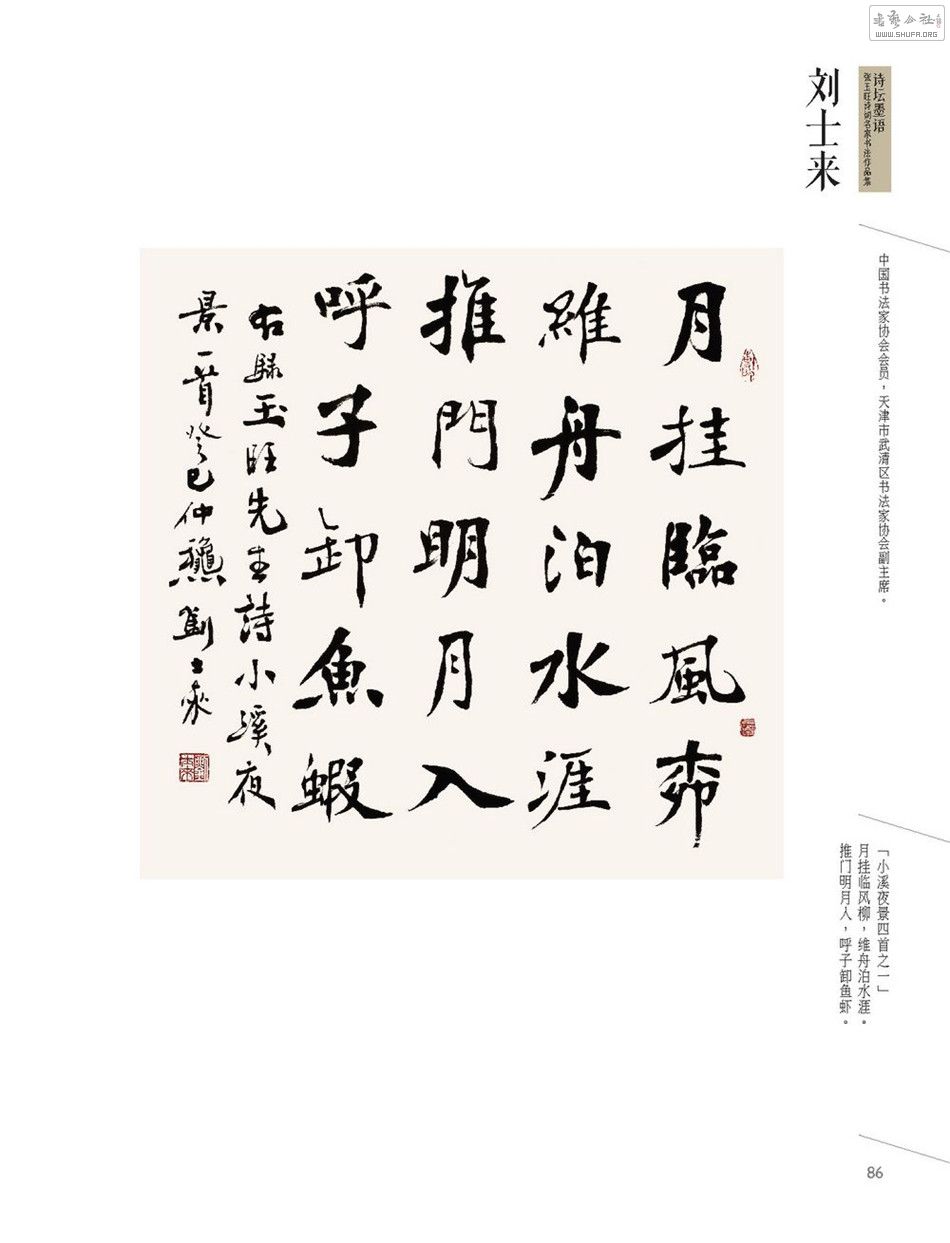 書藝公社
WWW.SHUFA.ORG
诗坛墨语
张玉旺诗词名家书法作品集
刘士来
中国书法家协会会员，天津市武清区书法家协会副主席。
月挂臨風桺
維舟泊水涯
推門明月入
呼子卸魚蝦
右録玉旺先生詩小溪夜
景一首癸巳仲龝劉士來
「小溪夜景四首之一」
月挂临风柳，维舟泊水涯。
推门明月人，呼子卸鱼虾。
86